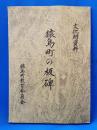 文化財資料
猿島町の板碑
猿島町教育委員会